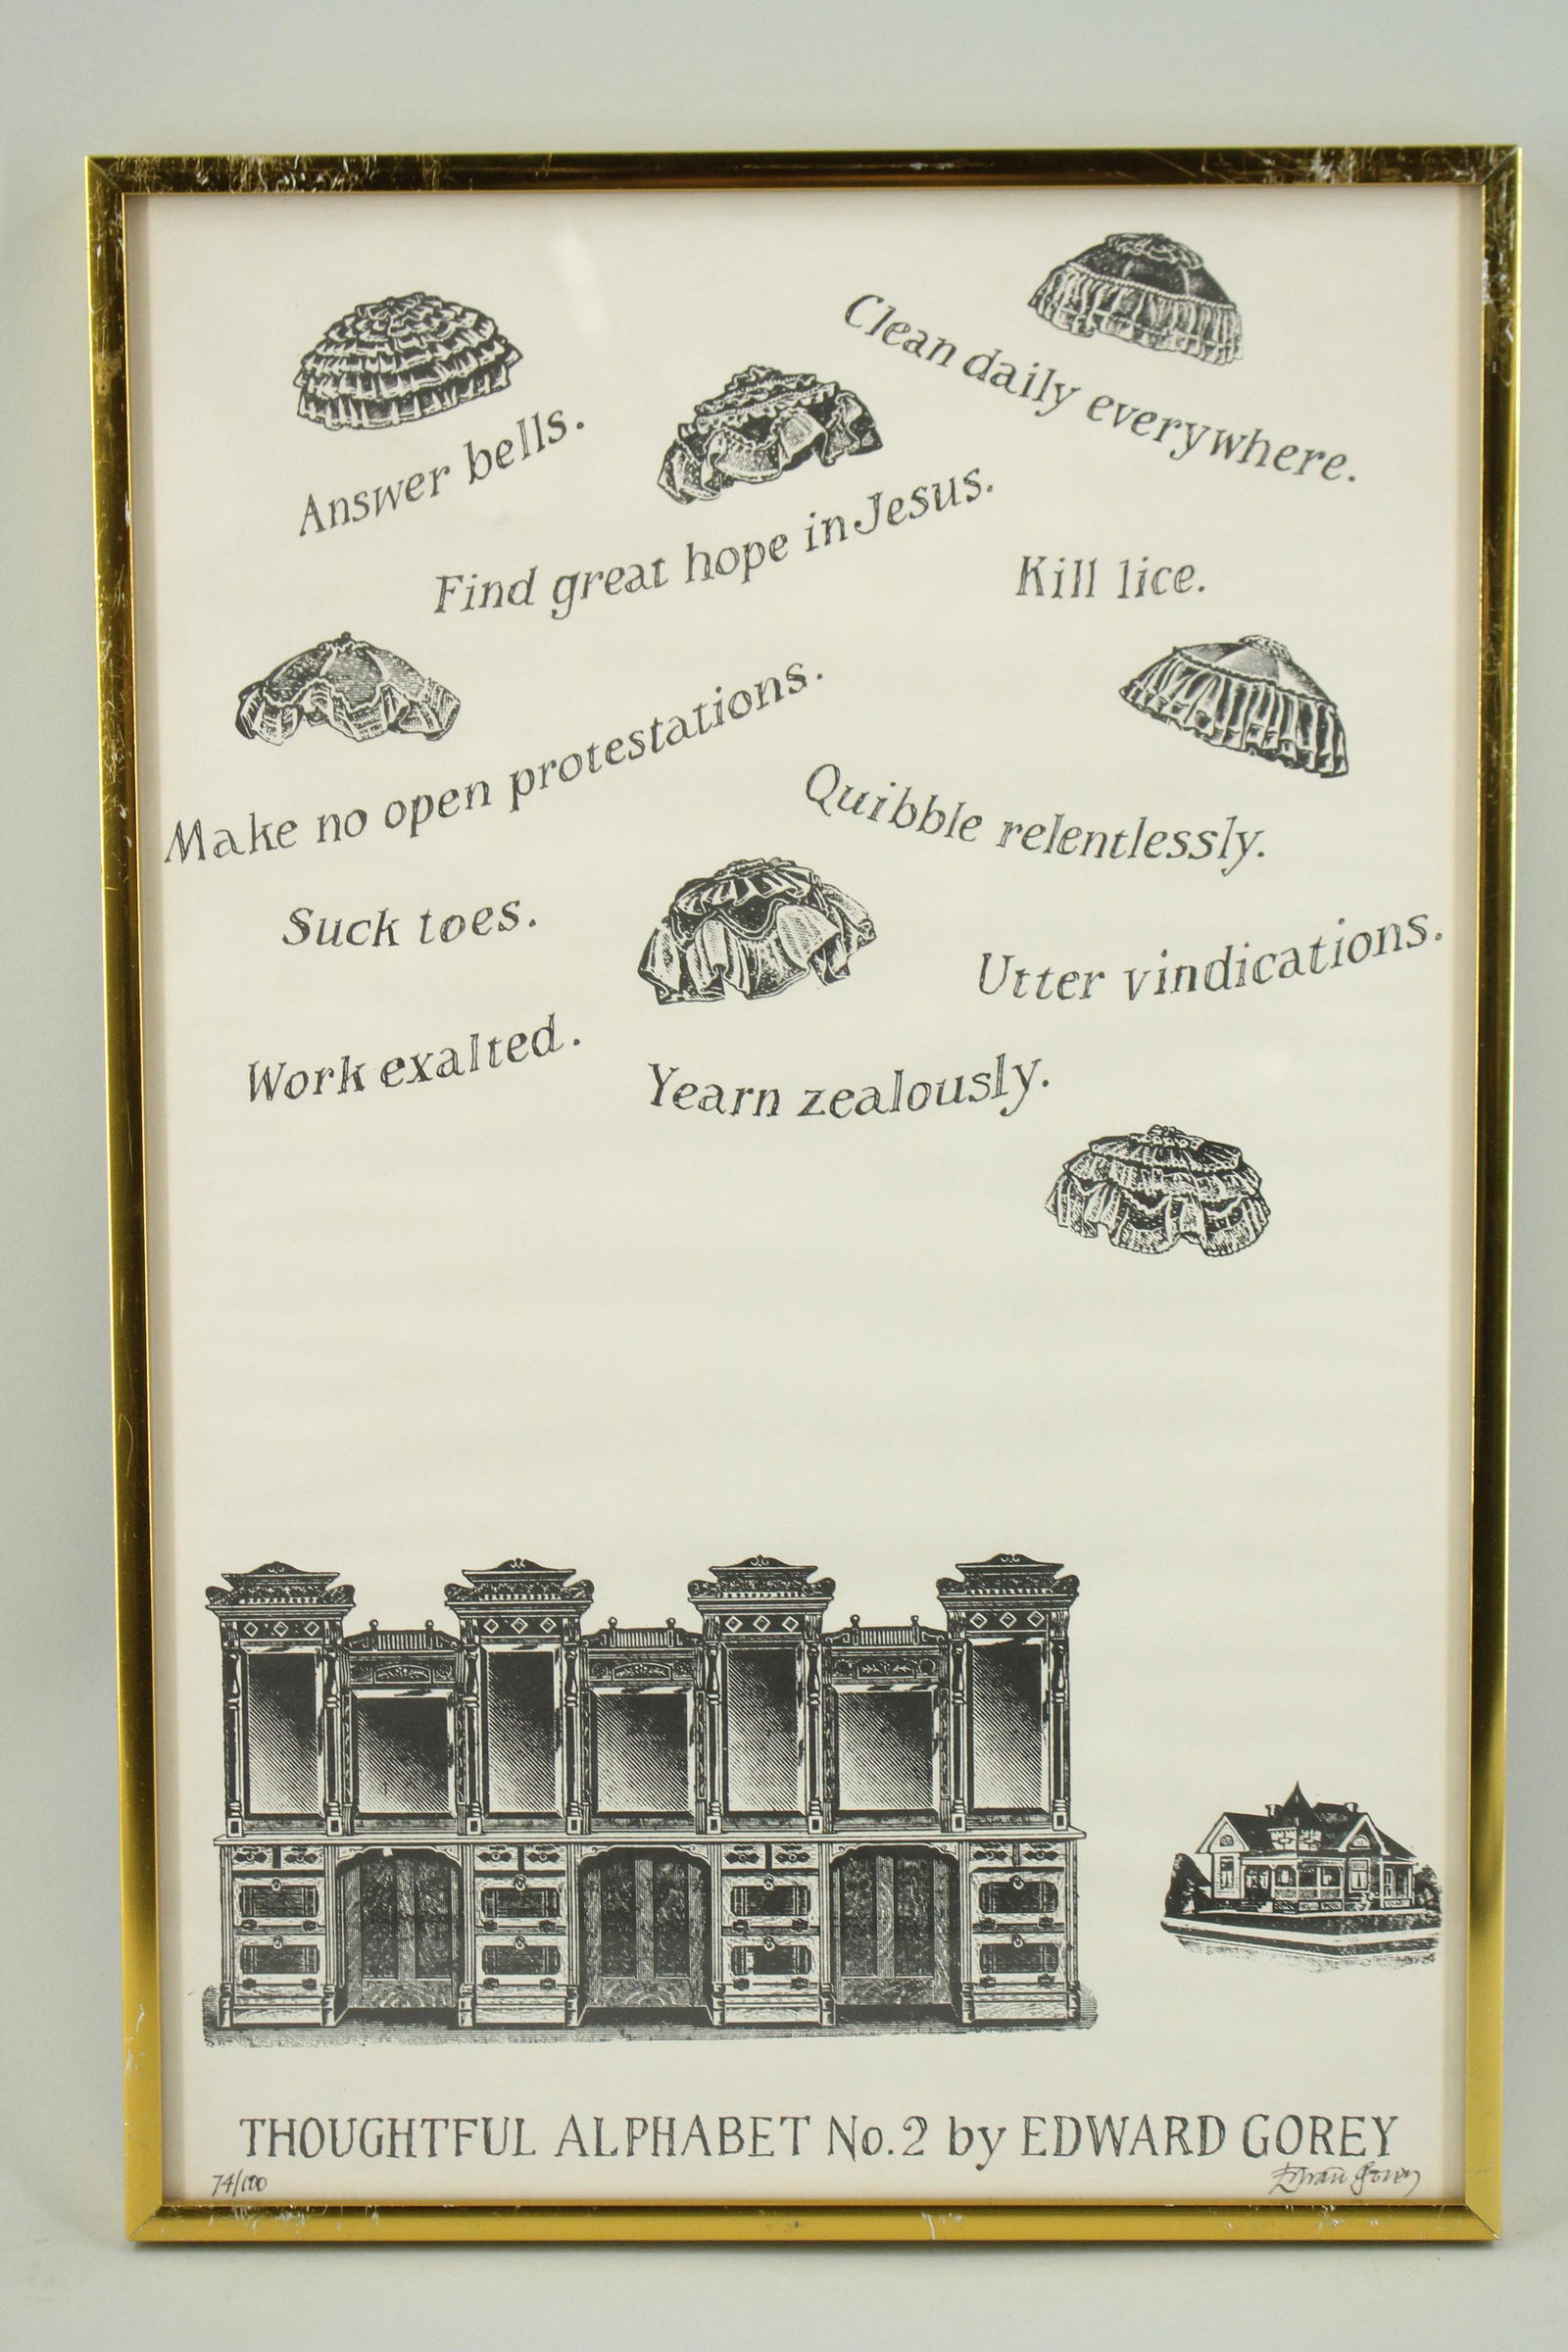 Answer bells.
Clean daily everywhere.
Find great hope in Jesus.
Kill lice.
Make no open protestations.
Quibble relentlessly.
Suck toes.
Utter vindications.
Work exalted.
Yearn zealously.
THOUGHTFUL ALPHABET No. 2 by EDWARD GOREY
74/100
Edward Gorey